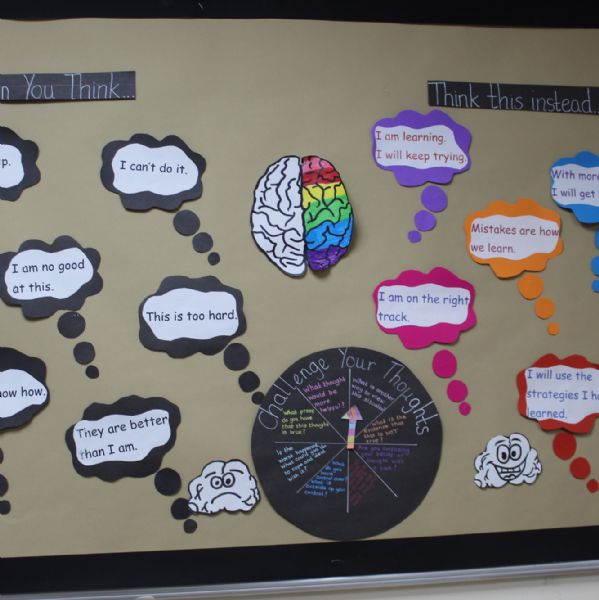 You Think...
I can't do it.
I am no good
at this.
This is too hard.
how.
They are better
than I am.
Think this instead..
I am learning.
I will keep trying.
With more
I will get
Mistakes are how
we learn.
I am on the right
track.
I will use the
strategies I
learned.
Challenge Your Thoughts
What thought
would be
more
helpful?
What is another
way to view
this situation?
What proof
do you have
that this thought
is true?
What is the
evidence that
this is NOT
true?
Is the
worst
happened,
what could you do
to cope and deal
with it?
What
do you
have
control over?
What is
outside of your
control?
Are you confusing
your belief or
thought with
a fact?